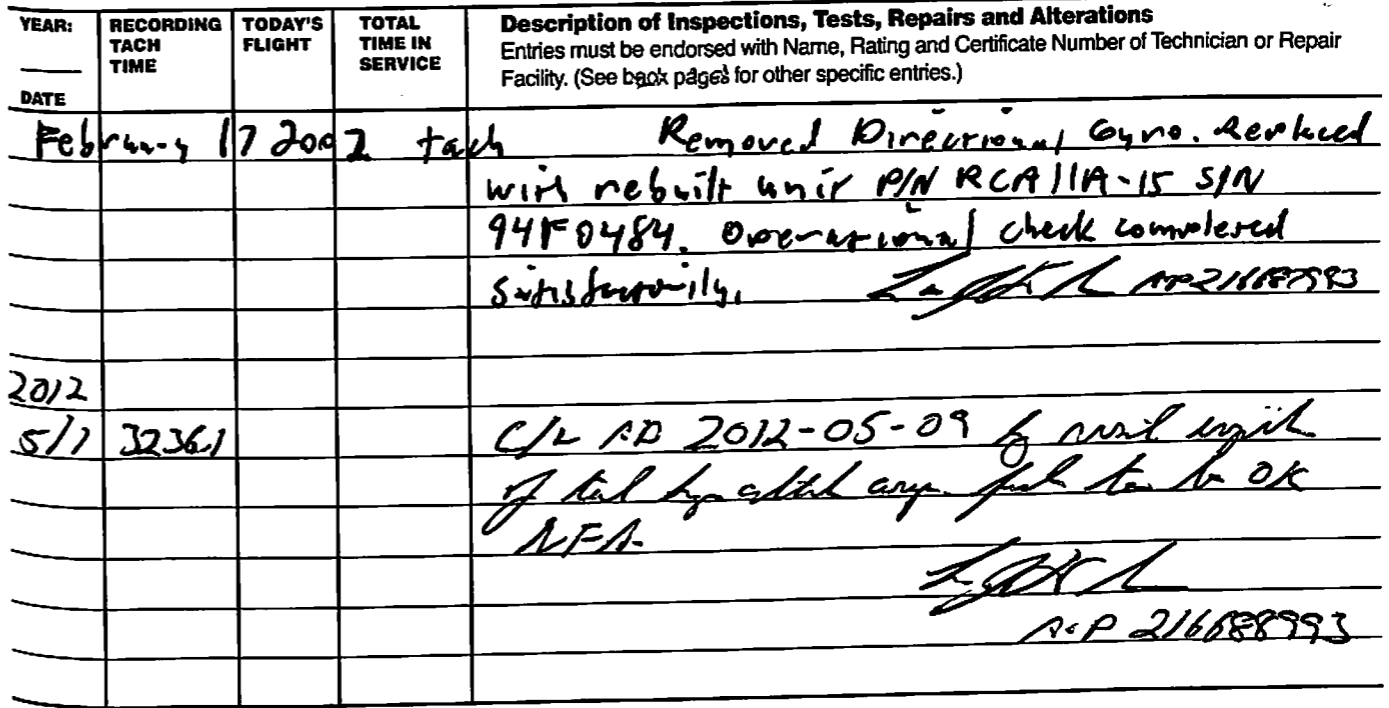 YEAR:
DATE
RECORDING TACH TIME
TODAY'S FLIGHT
TOTAL TIME IN SERVICE
Description of Inspections, Tests, Repairs and Alterations
Entries must be endorsed with Name, Rating and Certificate Number of Technician or Repair
Facility. (See back pages for other specific entries.)
February 17 2002 tach Removed Directional Gyro. Replaced
with rebuilt unit P/N RCA11A-15 S/N
94F0484. Operational check completed
Satisfactorily.
2012
5/7 3236.1 C/W AD 2012-05-09 by
of OK
NFA
A&P